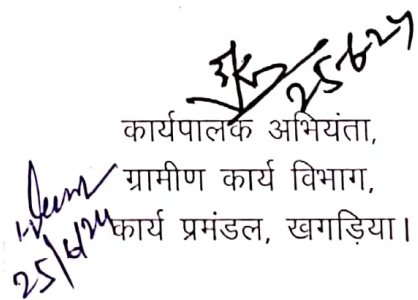 25.6.24
कार्यपालक अभियंता,
ग्रामीण कार्य विभाग,
कार्य प्रमंडल, खगड़िया।
25/6/24